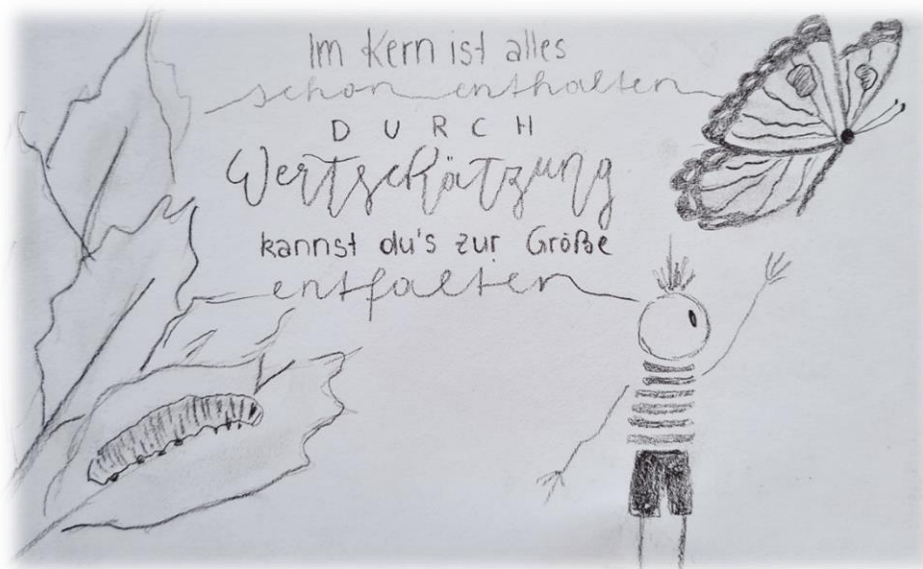 Im Kern ist alles
schon enthalten
DURCH
Wertschätzung
kannst du's zur Größe
entfalten